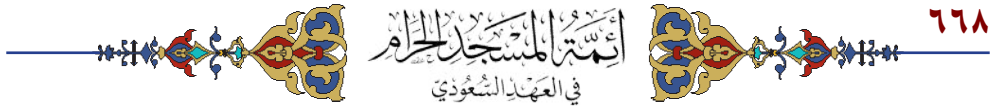 ٦٦٨
أَئِمَّةُ المَسْجِدِ الحَرَامِ
في العَهْدِ السُّعُودِيّ